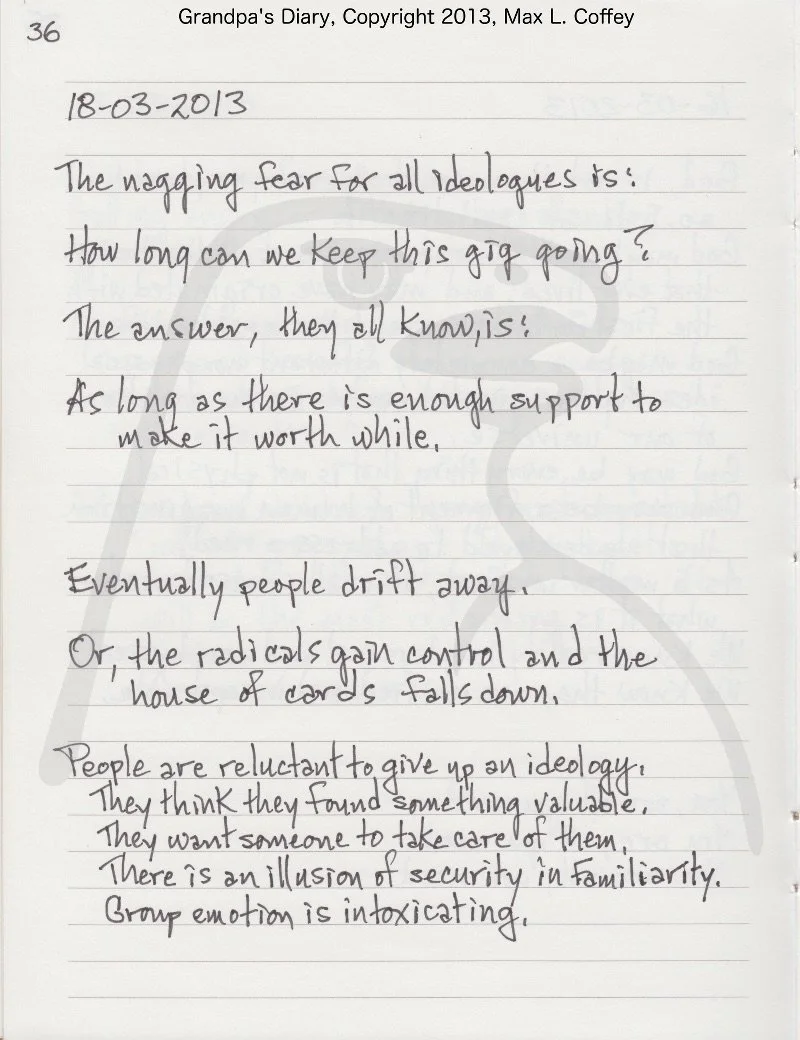 Grandpa's Diary, Copyright 2013, Max L. Coffey
36
18-03-2013
The nagging fear for all ideologues is:
How long can we keep this gig going?
The answer, they all know, is:
As long as there is enough support to
make it worth while.
Eventually people drift away.
Or, the radicals gain control and the
house of cards falls down.
People are reluctant to give up an ideology.
They think they found something valuable.
They want someone to take care of them.
There is an illusion of security in familiarity.
Group emotion is intoxicating.